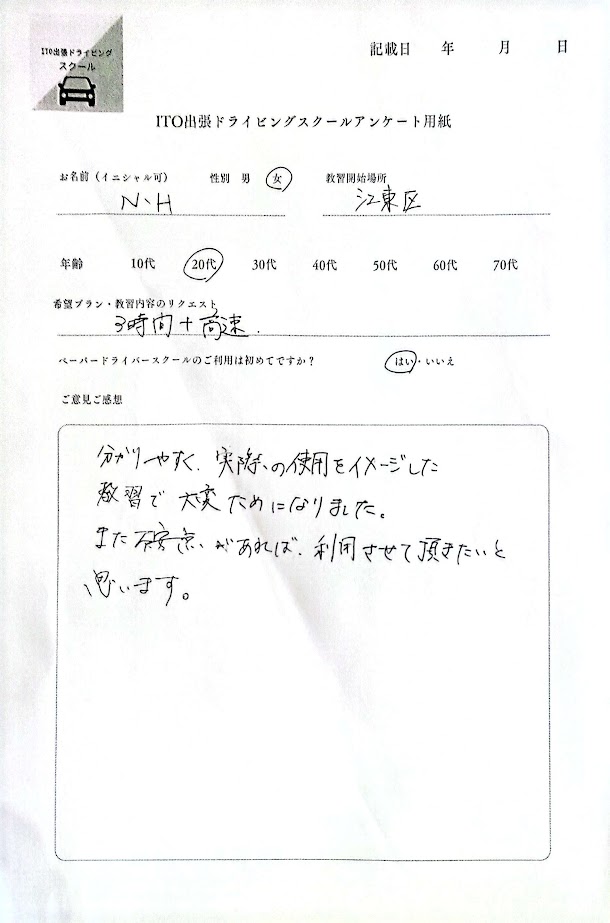 ITO出張ドライビング
スクール
記載日 年 月 日
ITO出張ドライビングスクールアンケート用紙
お名前(イニシャル可) 性別 男 女 教習開始場所
N、H 江東区
年齢 10代 20代 30代 40代 50代 60代 70代
希望プラン・教習内容のリクエスト
3時間+高速.
ペーパードライバースクールのご利用は初めてですか? はい・いいえ
ご意見ご感想
分かりやすく、実際の使用をイメージした
教習で大変ためになりました。
また不安点があれば、利用させて頂きたいと
思います。